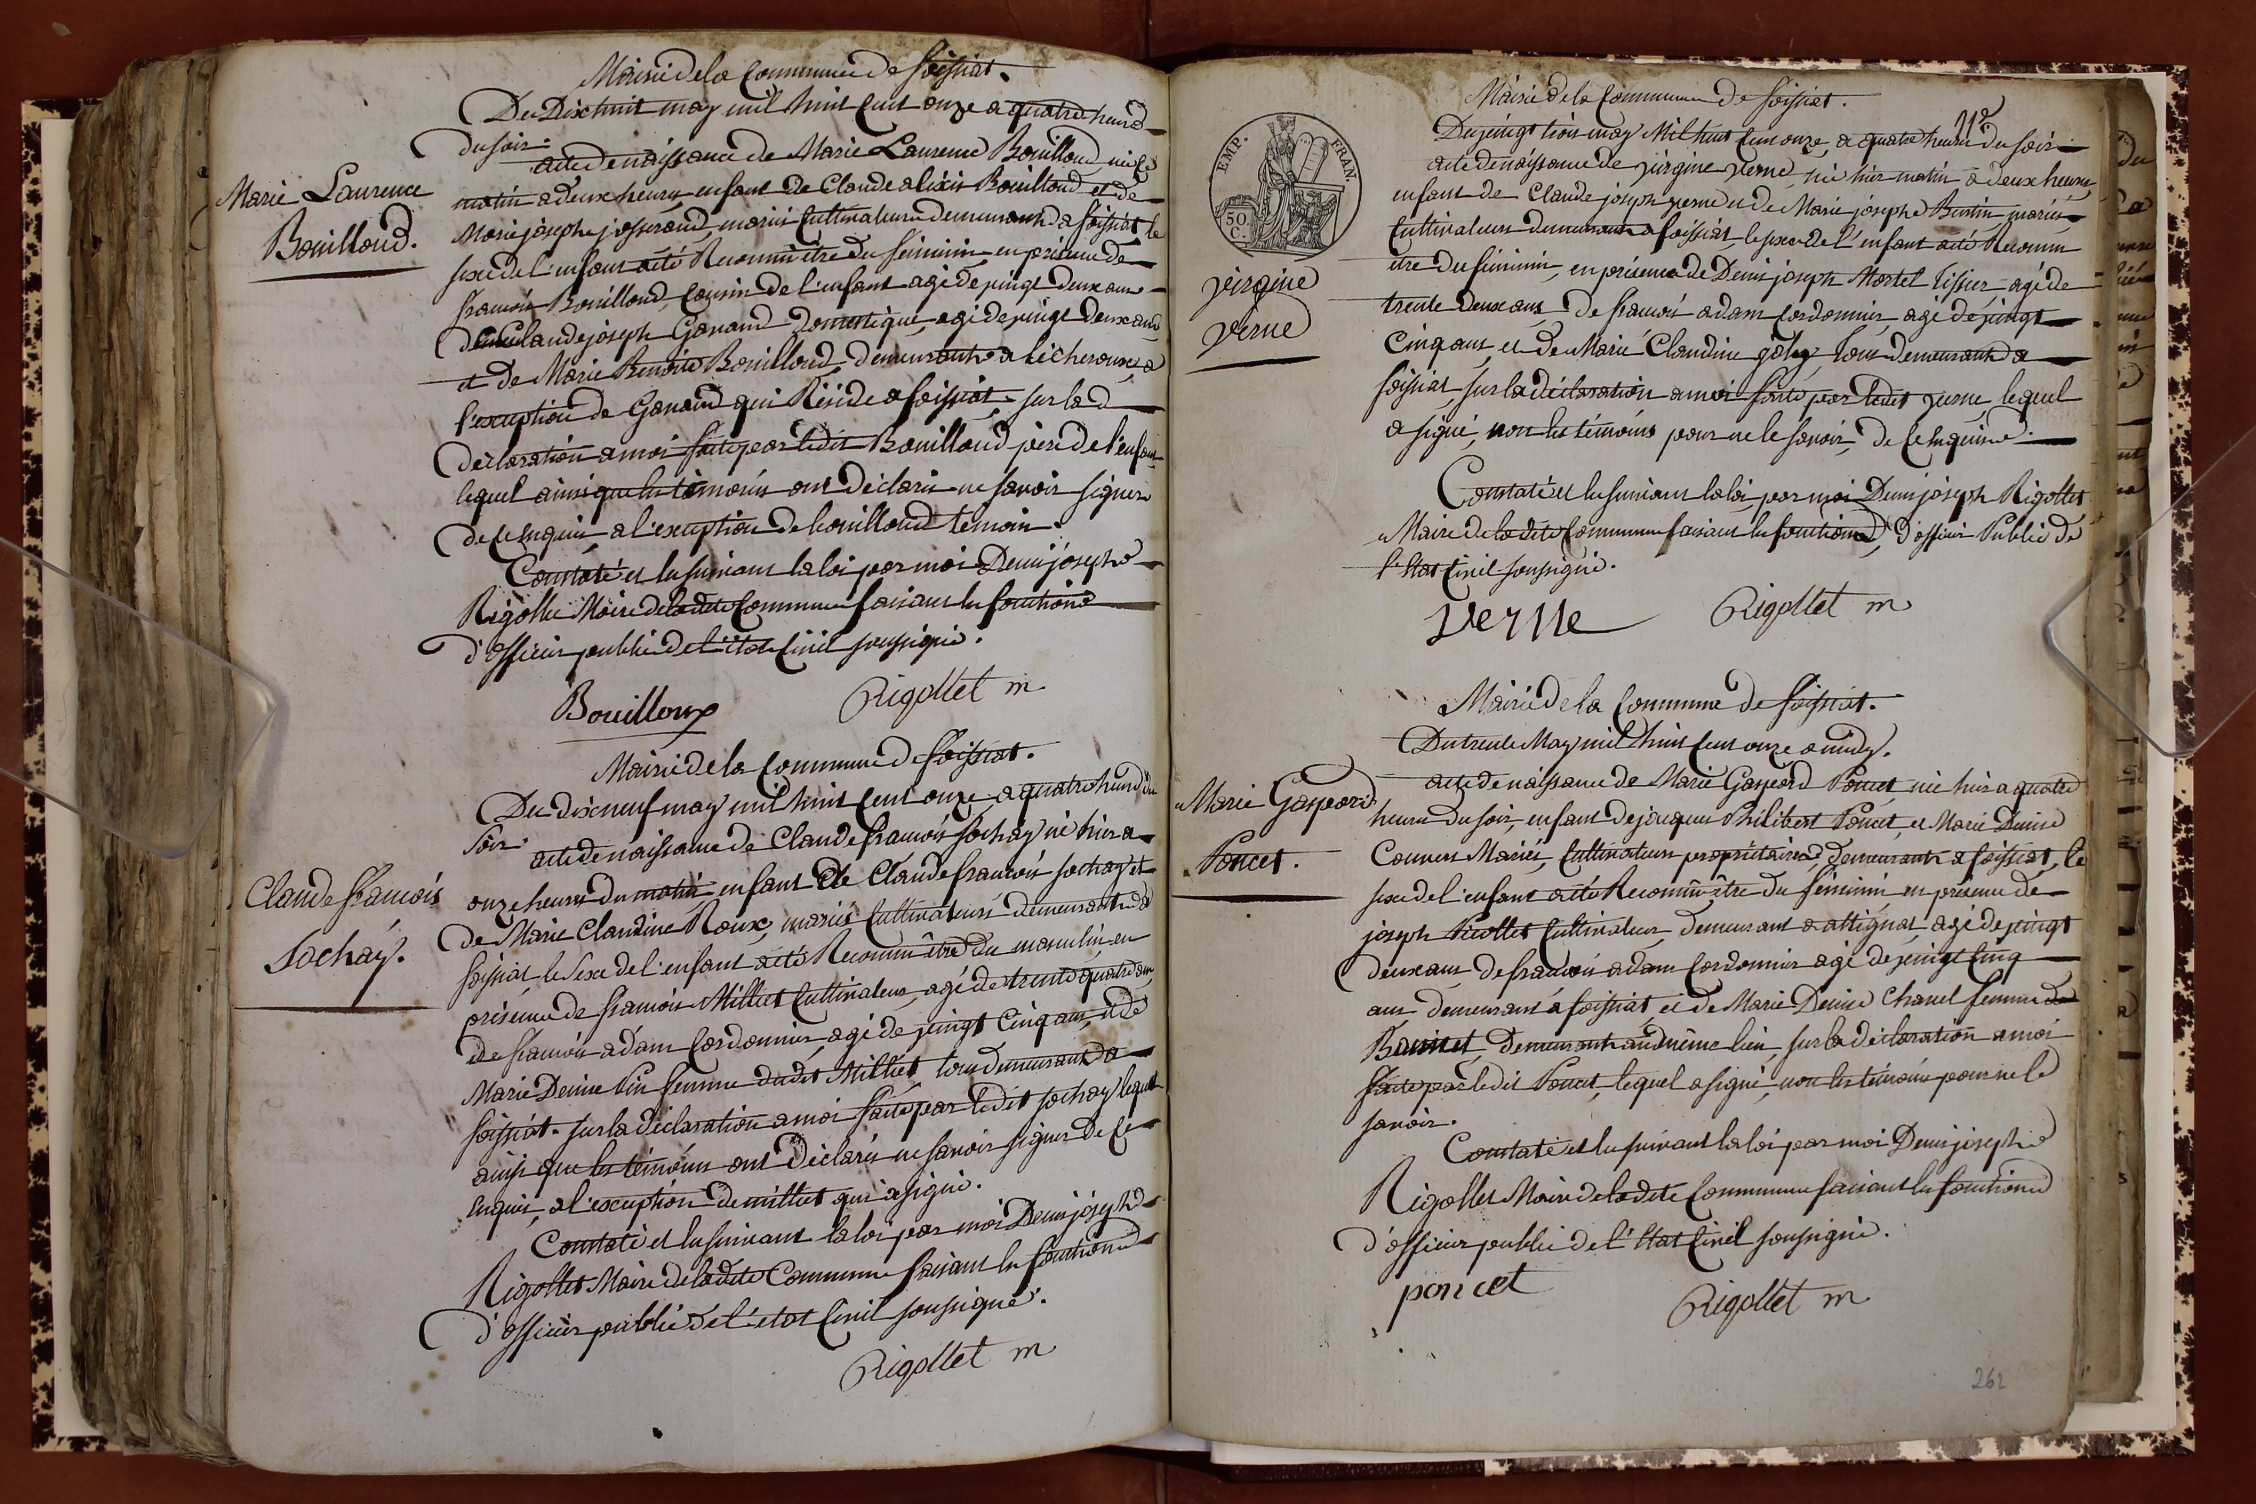 Mairie de la Commune de foissiat.
Du Dixhuit may mil huit cent onze a quatre heures
du soir.
acte de naissance de Marie Laurence Bouilloud, née ce
Marie Laurence
Bouilloud.
matin a deux heures enfant de Claude alixis Bouilloud et de
Marie josephe josserand, mariés Cultivateurs demeurants a foissiat le
sexe de l'enfant a été Reconnu être du féminin en présence de
francois Bouilloud, Cousin de l'enfant agé de vingt deux ans
de Claude joseph Ganand Domestique, agé de vingt deux ans
et de Marie Benoite Bouilloud demeurants a Lécheroux, a
l'exception de Ganand qui Réside a foissiat, sur la d
declaration a moi faite par ledit Bouilloud père de l'enfant
lequel ainsi que les témoins ont déclaré ne savoir signer
de ce enquis, a l'exception de bouilloud temoin.
Constaté et lu suivant la loi par moi Denis josephe
Rigollet Maire de ladite Commune faisant les fonctions
d'officier public de l'état Civil soussigné.
Bouilloux Rigollet m
Mairie de la Commune de foissiat.
Du dix neuf may mil huit Cent onze a quatre heures du
soir.
acte de naissance de Claude francois sochay né hier a
Claude francois
Sochay.
onze heures du matin enfant de Claude francois sochay et
de Marie Claudine Roux, mariés Cultivateurs demeurants a
foissiat, le Sexe de l'enfant a été Reconnu être du masculin en
présence de francois Milliet Cultivateur, agé de trente quatre ans
de francois adam Cordonnier, agé de vingt Cinq ans, et de
Marie Denise Pin femme dudit Milliet tous demeurants a
foissiat. sur la déclaration a moi faite par ledit sochay lequel
ainsi que les témoins ont déclarés ne savoir signer De Ce
Enquis, a l'exception de milliet qui a signé.
Constaté et lu suivant la loi par moi Denis joseph
Rigollet Maire de ladite Commune faisant les fonctions
d'officier public de l'état Civil soussigné.
Rigollet m
Mairie de la Commune de foissiat.
Du vingt trois may Mil huit Cent onze, a quatre heures du soir
EMP. FRAN.
50 C.
virgine
verne
acte de naissance de virgine verne, née hier matin a deux heures
enfant de Claude joseph verne et de Marie josephe Buntin mariés
Cultivateurs demeurants a foissiat, le sexe de l'enfant a été Reconnu
etre du féminin, en présence de Denis joseph Martel Tissier, agé de
trente deux ans, De francois adam Cordonnier agé de vingt
Cinq ans, et de Marie Claudine galley, tous demeurants a
foissiat, sur la déclaration a moi faite par ledit verne, lequel
a signé, non les témoins pour ne le savoir, de ce Enquis.
Constaté et lu suivant la loi, par moi Denis joseph Rigollet
Maire de ladite Commune faisant les fonctions d'officier Public de
l'Etat Civil soussigné.
verne Rigollet m
Mairie de la Commune de foissiat.
Du trente May mil huit Cent onze a midy.
acte de naissance de Marie Gaspard Poncet née hier a quatre
Marie Gaspard
Poncet.
heures du soir, enfant de jacques Philibert Poncet, et Marie Denise
Convert Mariés, Cultivateurs propriétaires, demeurants a foissiat, le
sexe de l'enfant a été Reconnu être du féminin en présence de
joseph Picollet Cultivateur, demeurant a attignat, agé de vingt
deux ans, de francois adam Cordonnier agé de vingt Cinq
ans demeurant a foissiat, et de Marie Denise Chanel femme de
demeurants au même lieu, sur la déclaration a moi
faite par ledit Poncet, lequel a signé, non les témoins pour ne le
savoir.
Constaté et lu suivant la loi par moi Denis josephe
Rigollet Maire de ladite Commune faisant les fonctions
d'officier public de l'Etat Civil soussigné.
poncet Rigollet m
262